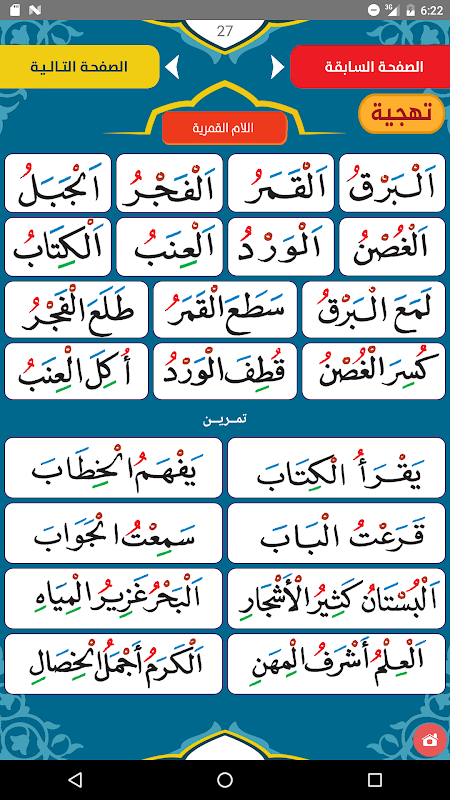 3G 6:22
27
الصفحة السابقة الصفحة التالية
تهجية
اللام القمرية
اَلْبَرْقُ اَلْقَمَرُ اَلْفَجْرُ اَلْجَبَلُ
اَلْغُصْنُ اَلْوَرْدُ اَلْعِنَبُ اَلْكِتَابُ
لَمَعَ الْبَرْقُ سَطَعَ الْقَمَرُ طَلَعَ الْفَجْرُ
كُسِرَ الْغُصْنُ قُطِفَ الْوَرْدُ أُكِلَ الْعِنَبُ
تمريـن
يَقْرَأُ الْكِتَابَ يَفْهَمُ الْخِطَابَ
قَرَعْتُ الْبَابَ سَمِعْتُ الْجَوَابَ
اَلْبُسْتَانُ كَثِيرُ الْأَشْجَارِ اَلْبَحْرُ غَزِيرُ الْمِيَاهِ
اَلْعِلْمُ أَشْرَفُ الْمِهَنِ اَلْكَرَمُ أَجْمَلُ الْخِصَالِ